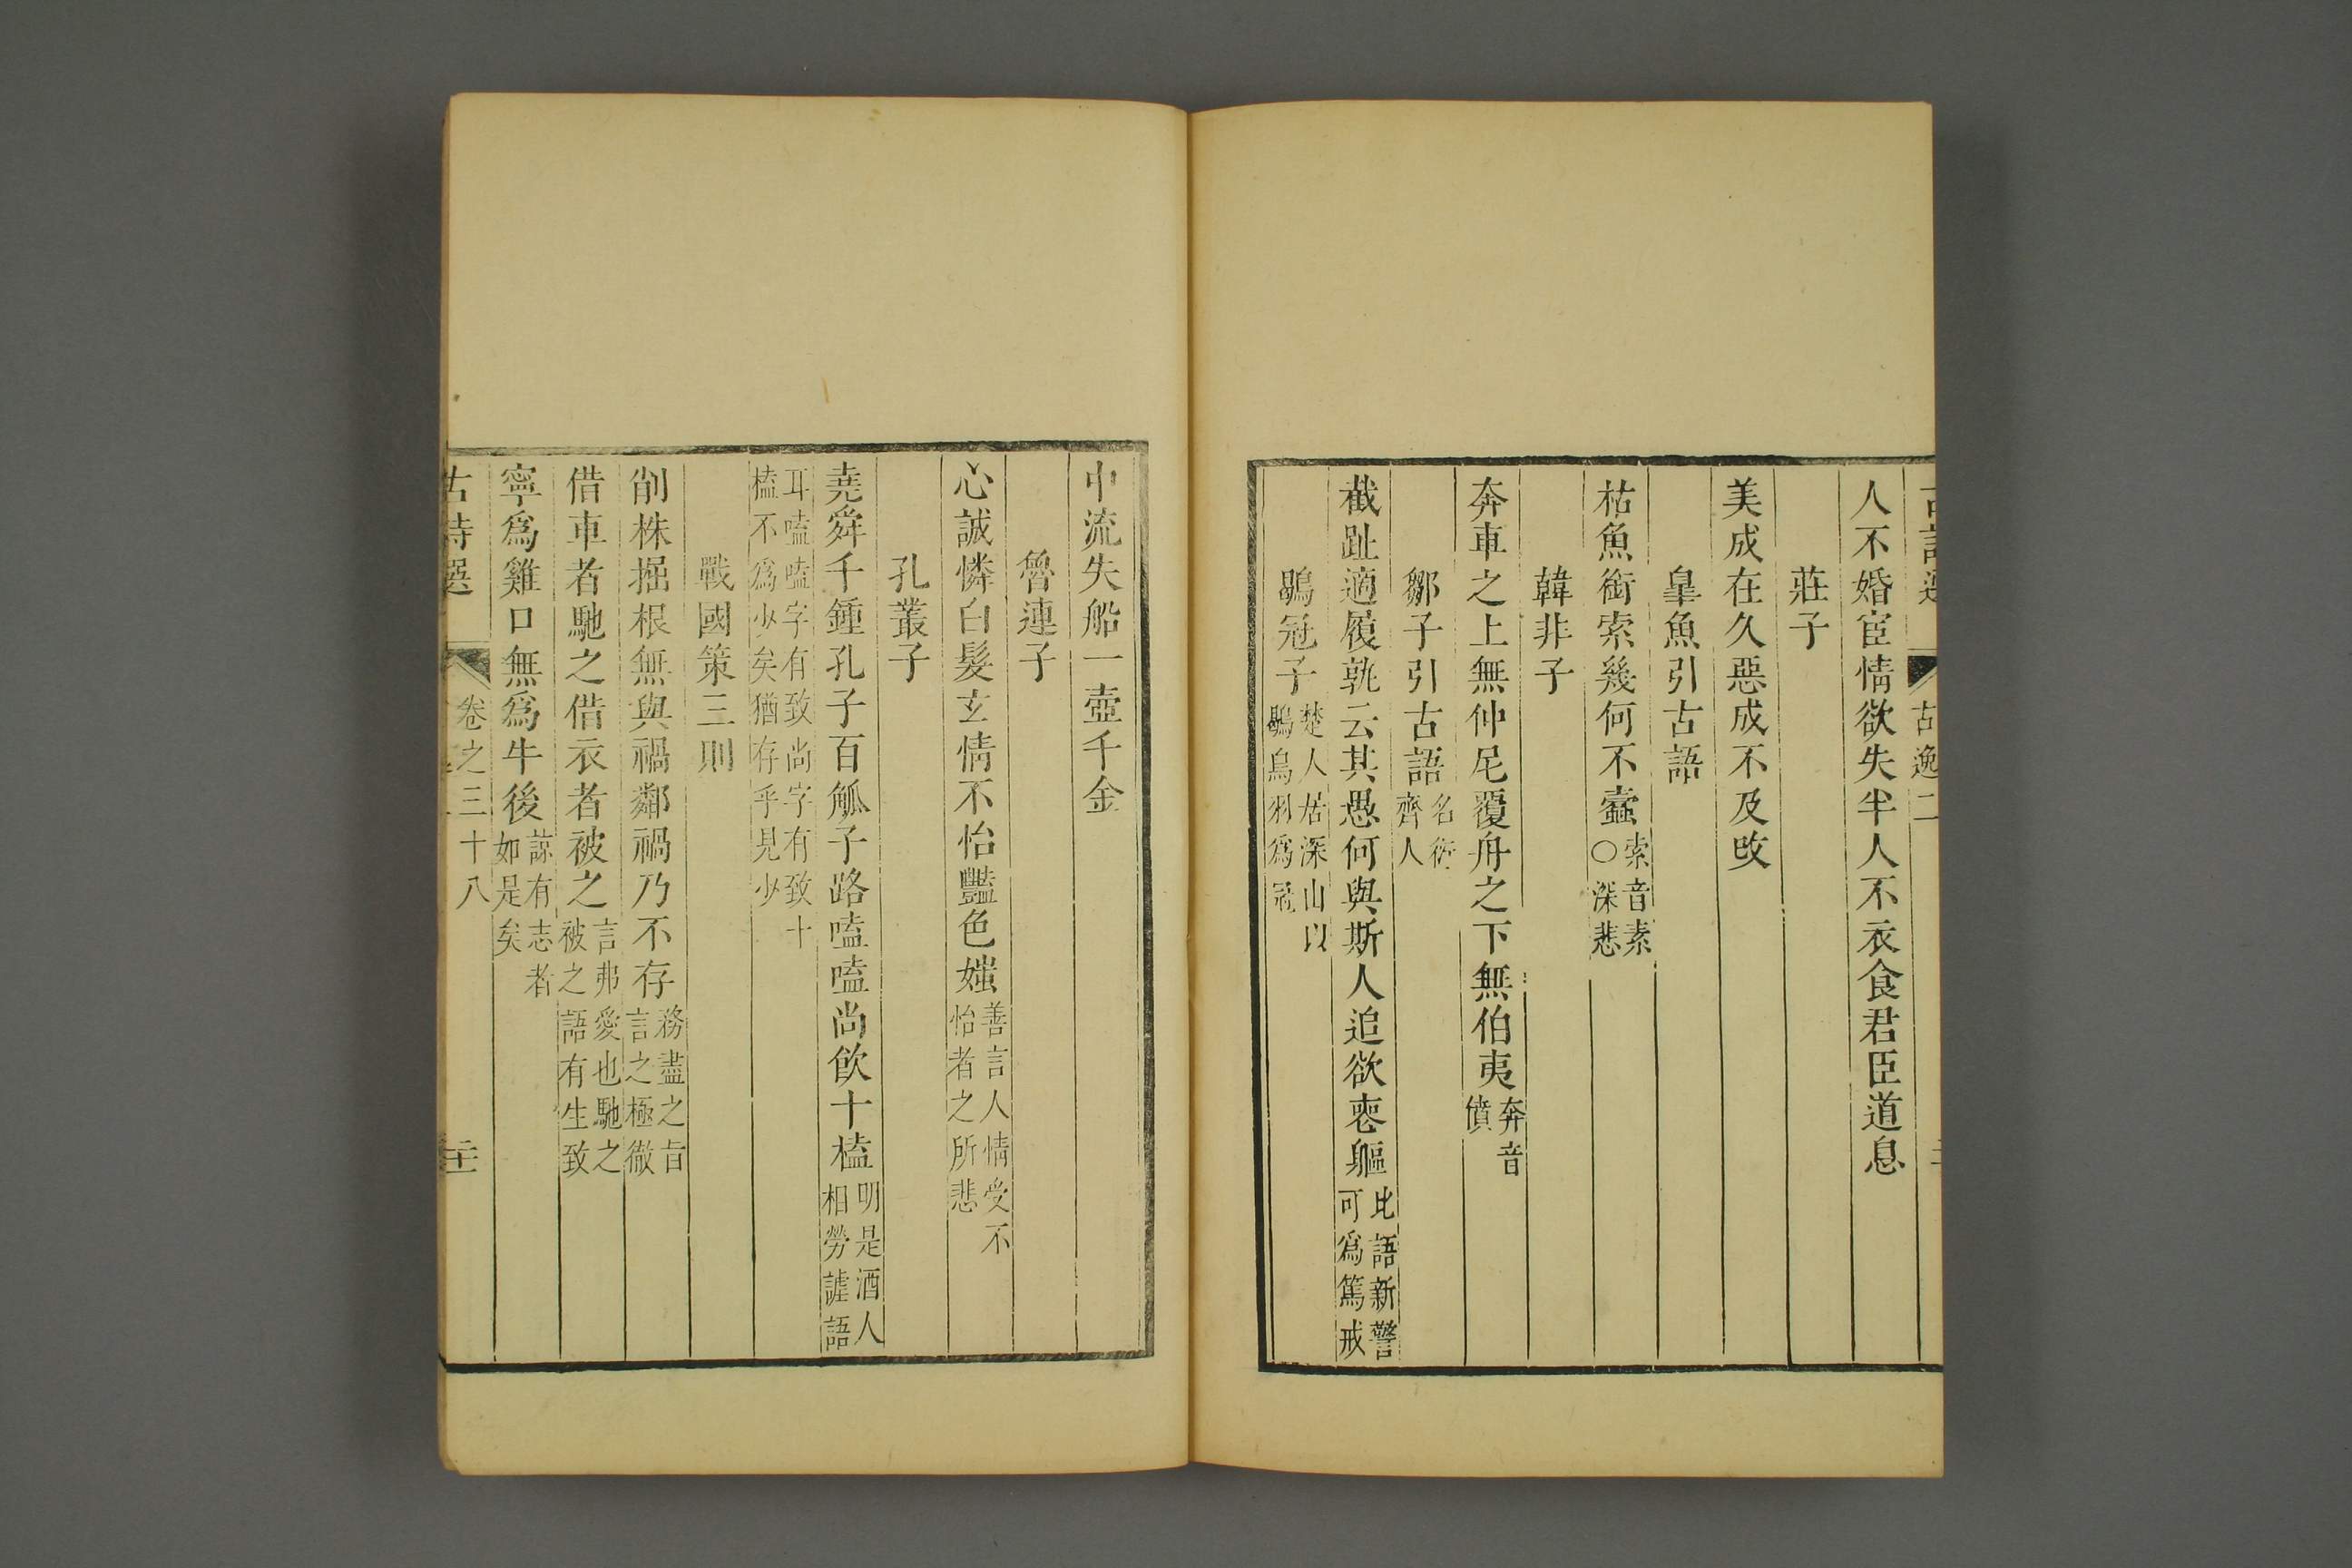 古詩選 古逸二
人不婚宦情欲失半人不衣食君臣道息
莊子
美成在久惡成不及改
臯魚引古語
枯魚銜索幾何不蠹索音素○深悲
韓非子
奔車之上無仲尼覆舟之下無伯夷奔音僨
鄒子引古語名衍齊人
截趾適屨孰云其愚何與斯人追欲喪軀此語新警可爲篤戒
鶡冠子楚人居深山以鶡鳥羽爲冠
中流失船一壺千金
魯連子
心誠憐白髮玄情不怡豔色媸善言人情受不怡者之所悲
孔叢子
堯舜千鍾孔子百觚子路嗑嗑尚飲十榼明是酒人相勞謔語
耳嗑嗑字有致尚字有致十榼不爲少矣猶存乎見少
戰國策三則
削株掘根無與禍鄰禍乃不存務盡之旨言之極徹
借車者馳之借衣者被之言弗愛也馳之被之語有生致
寧爲雞口無爲牛後諒有志者如是矣
古詩選 卷之三十八 二十一